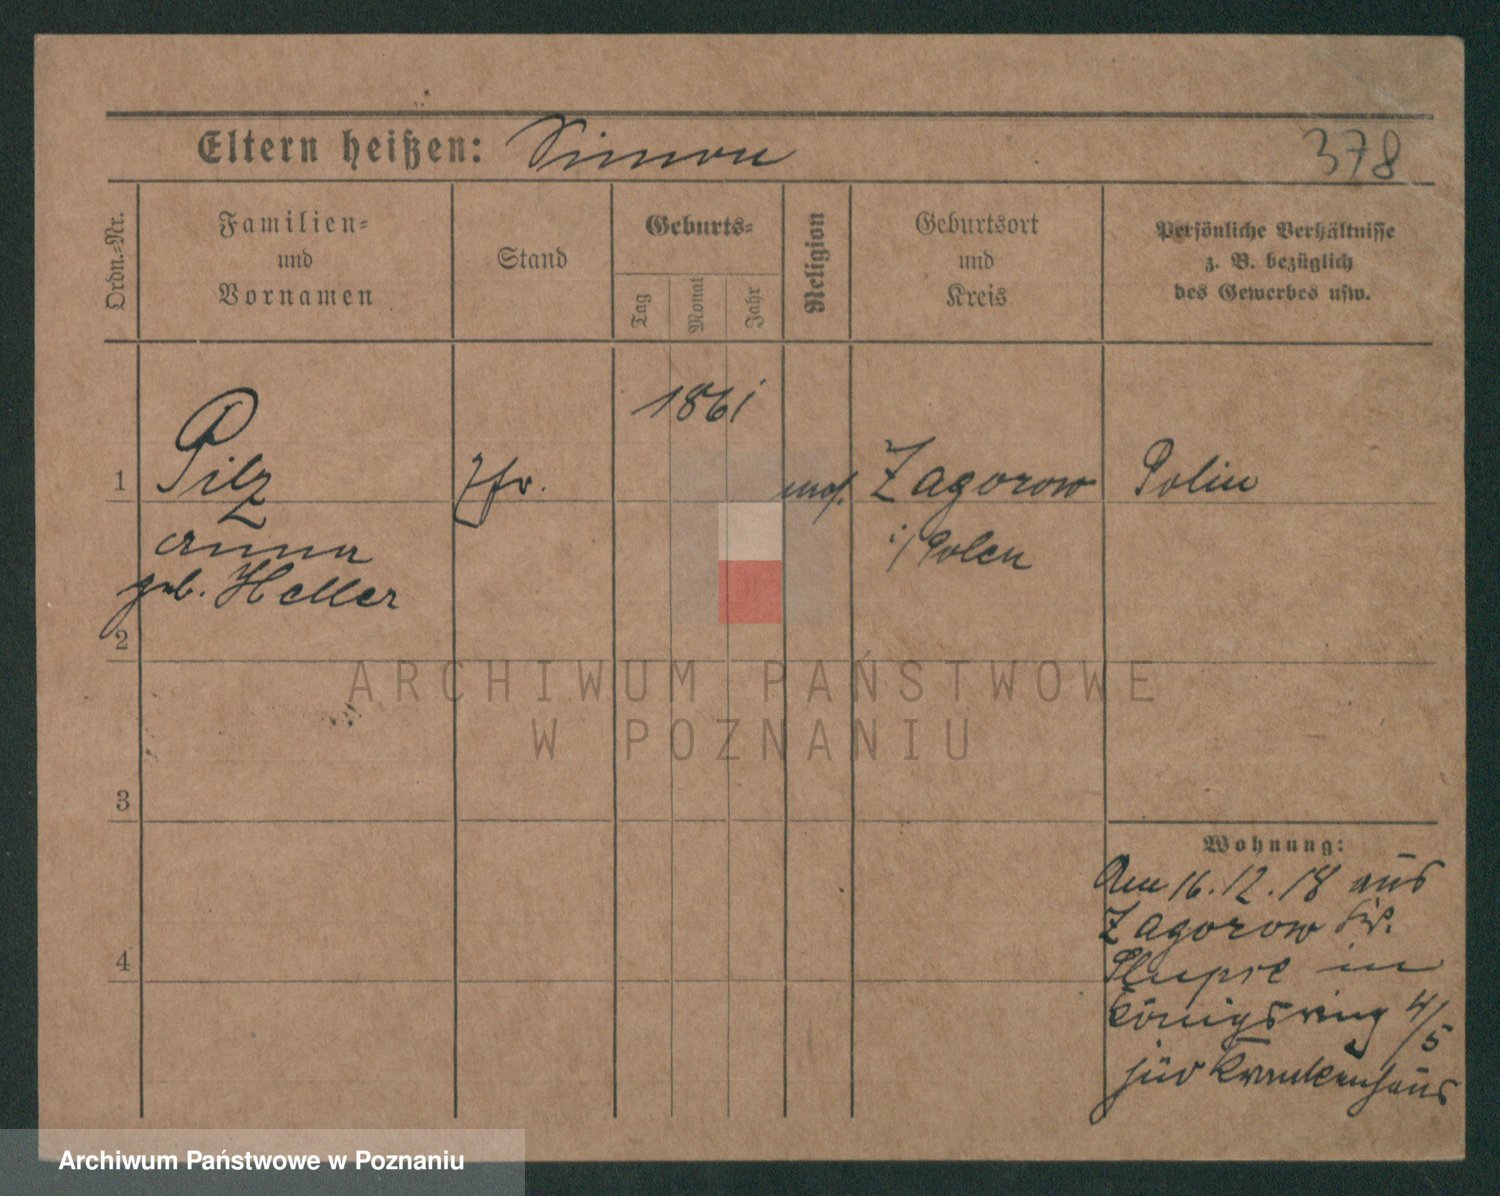 Eltern heißen: Simon
378
Ordn.-Nr.
Familien-
und
Vornamen
Stand
Geburts-
Tag
Monat
Jahr
Religion
Geburtsort
und
Kreis
Persönliche Verhältnisse
z. B. bezüglich
des Gewerbes usw.
1861
1 Pilz
mos. Zagorow Polin
Anna
i/Polen
geb. Heller
2
ARCHIWUM PAŃSTWOWE
W POZNANIU
3
4
Wohnung:
Am 16.12.18 aus
Zagorow
in
Königsring 4/5
jüd Krankenhaus
Archiwum Państwowe w Poznaniu